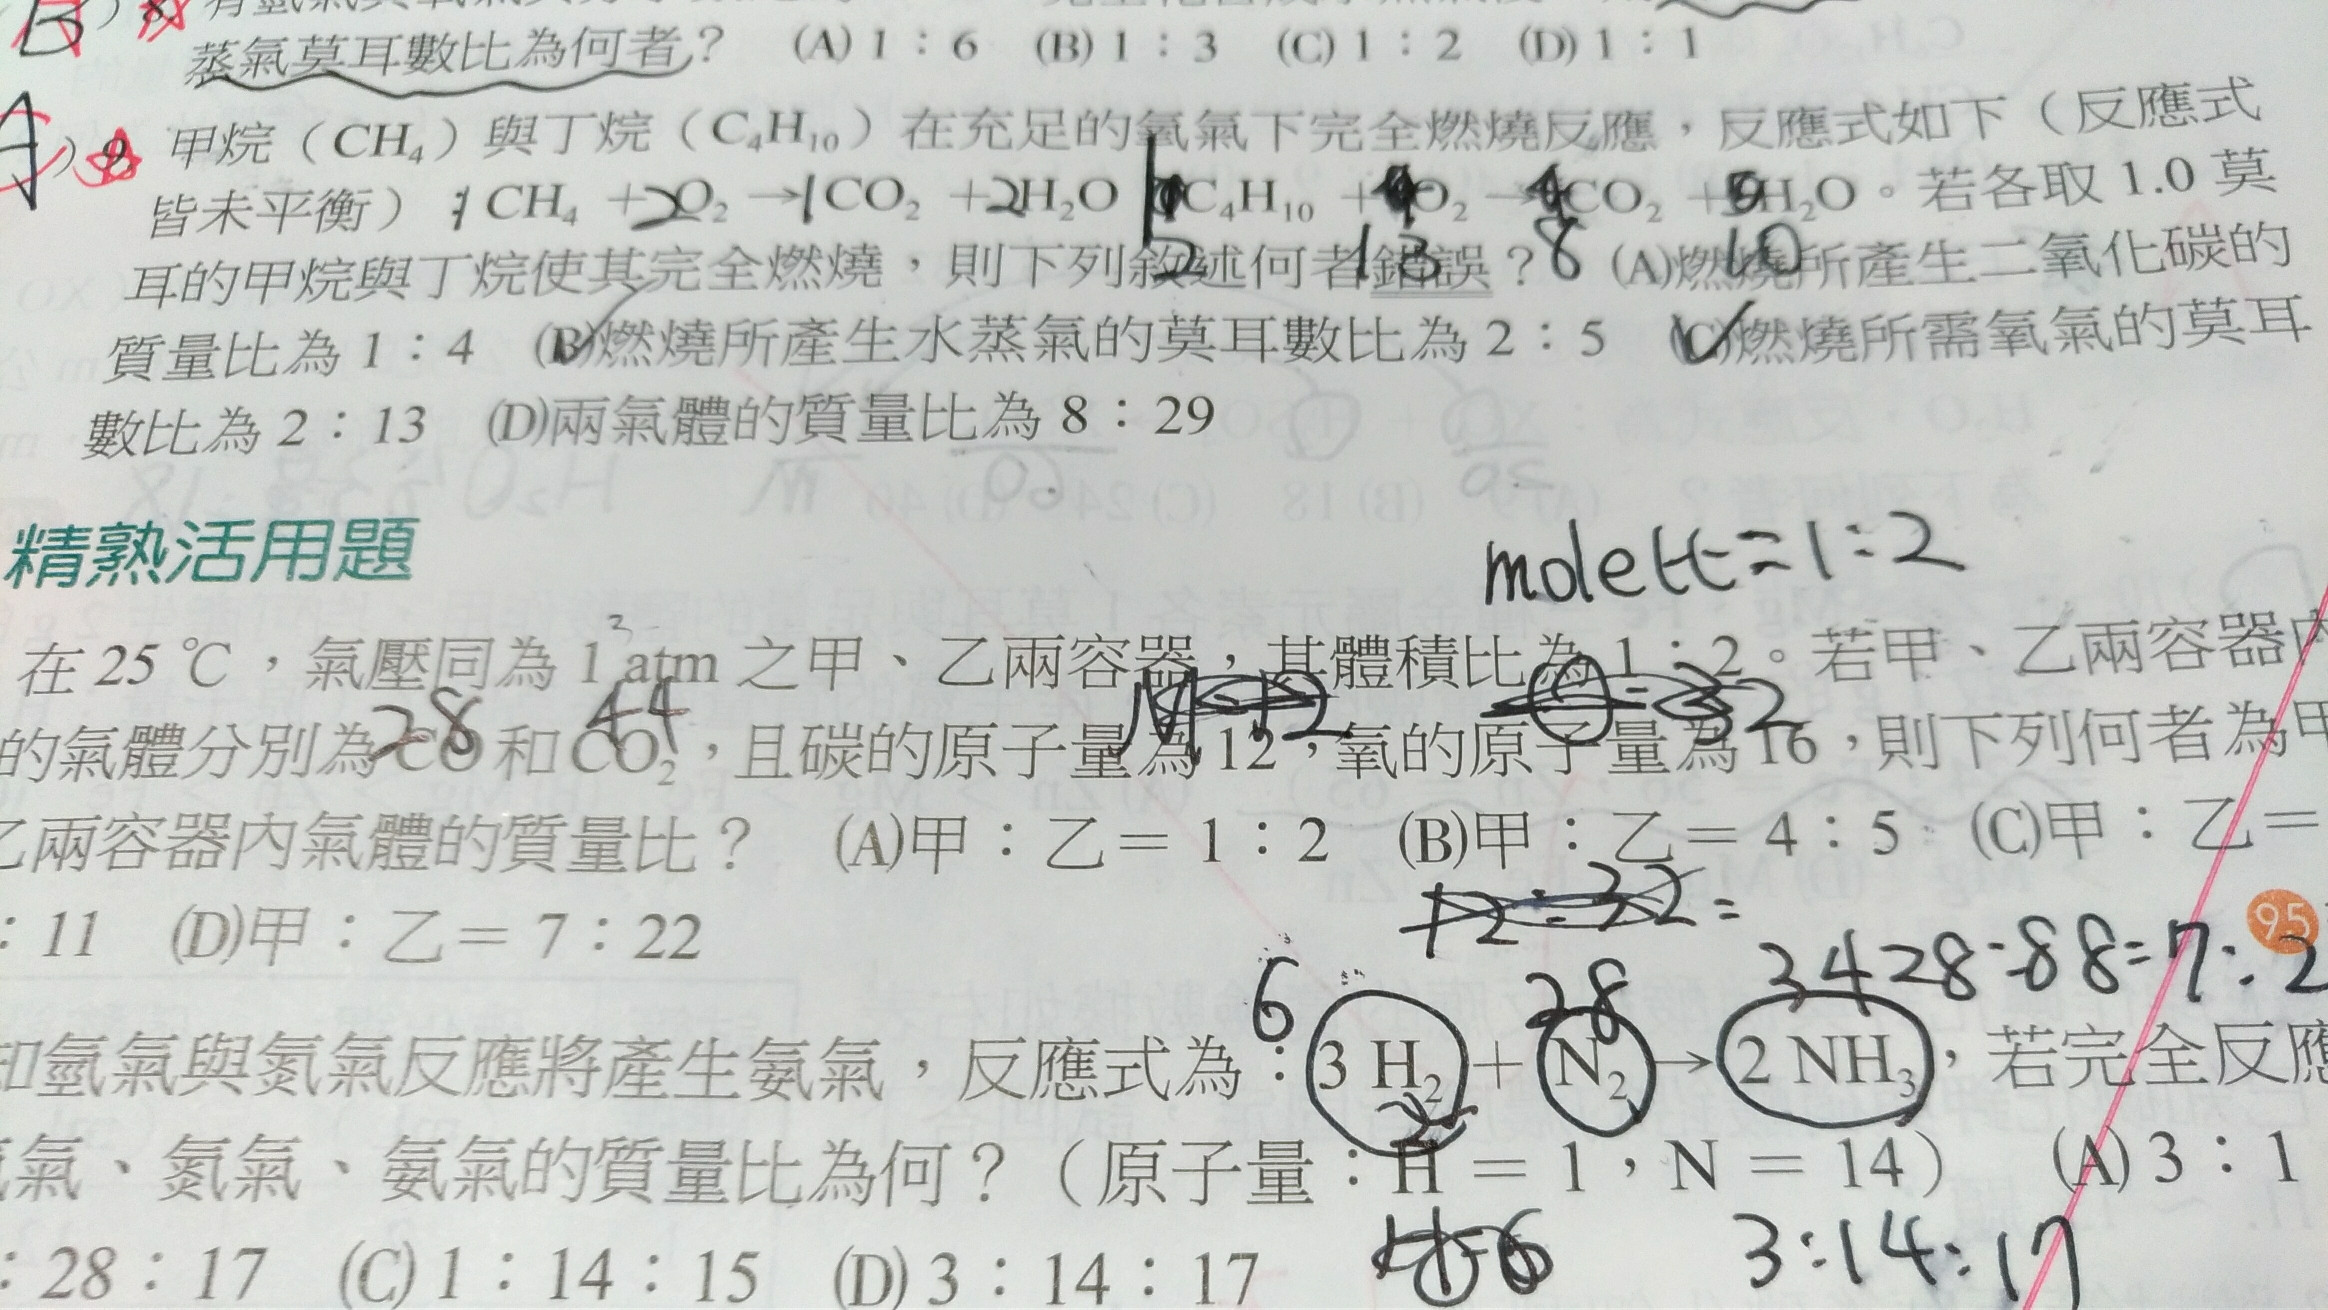 蒸氣莫耳數比為何者？ (A) 1：6 (B) 1：3 (C) 1：2 (D) 1：1
)9. 甲烷（CH₄）與丁烷（C₄H₁₀）在充足的氧氣下完全燃燒反應，反應式如下（反應式
皆未平衡）：1 CH₄ + 2O₂ → 1CO₂ + 2H₂O C₄H₁₀ + O₂ → 4CO₂ + 5H₂O。若各取 1.0 莫
2 13 8 10
耳的甲烷與丁烷使其完全燃燒，則下列敘述何者錯誤？ (A)燃燒所產生二氧化碳的
質量比為 1：4 (B)燃燒所產生水蒸氣的莫耳數比為 2：5 (C)燃燒所需氧氣的莫耳
數比為 2：13 (D)兩氣體的質量比為 8：29
精熟活用題
mole比=1:2
在 25 ℃，氣壓同為 1 atm 之甲、乙兩容器，其體積比為 1：2。若甲、乙兩容器內
28 44
的氣體分別為 CO 和 CO₂，且碳的原子量為 12，氧的原子量為 16，則下列何者為甲
乙兩容器內氣體的質量比？ (A)甲：乙＝ 1：2 (B)甲：乙＝ 4：5 (C)甲：乙＝
：11 (D)甲：乙＝ 7：22
95
28:88=7:2
6 28 34
知氫氣與氮氣反應將產生氨氣，反應式為：3 H₂ + N₂ → 2 NH₃，若完全反應
氫氣、氮氣、氨氣的質量比為何？（原子量：H ＝ 1，N ＝ 14） (A) 3：1
：28：17 (C) 1：14：15 (D) 3：14：17
3:14:17